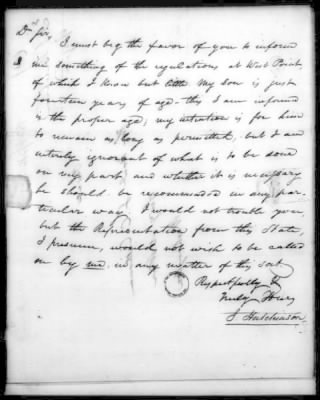 Dr Sir,
I must beg the favor of you to inform
me something of the regulations at West Point
of which I know but little. My Son is just
fourteen years of age - this I am informed
is the proper age; my intention is for him
to remain as long as permitted; but I am
utterly ignorant of what is to be done
on my part and whether it is necessary
he should be recommended in any par-
ticular way. I would not trouble you,
but the Representation from this State,
I presume, would not wish to be called
on by me, in any matter of this sort
Respectfully &
Truly Yours
J Hutchinson